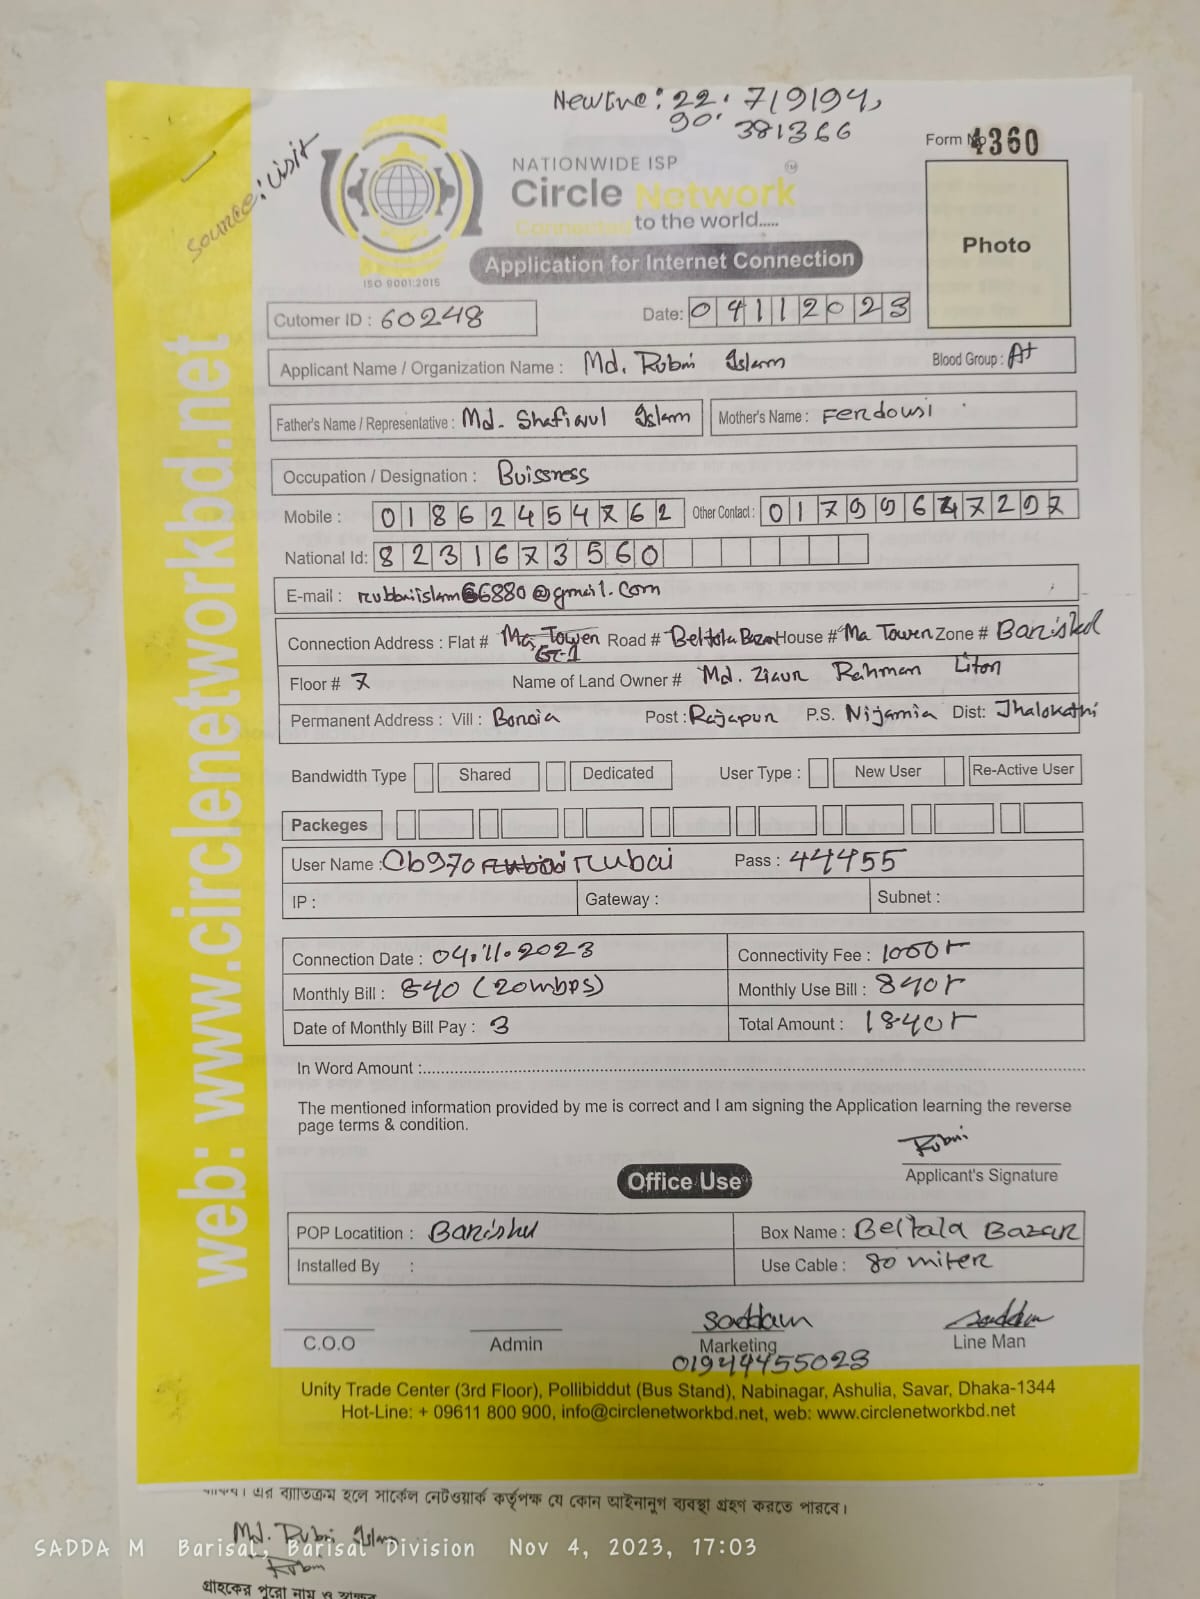 Newline: 22.719194,
90.381366
Source: visit
Form No 4360
NATIONWIDE ISP
TM
Circle Network
Connected to the world.....
ISO 9001:2015
Application for Internet Connection
Photo
Cutomer ID : 60248
Date: 04112023
Applicant Name / Organization Name : Md. Rubai Islam Blood Group : A+
Father's Name / Representative : Md. Shafiqul Islam Mother's Name : Ferdousi
Occupation / Designation : Buissness
Mobile : 01862454762 Other Contact : 01799647297
National Id: 8231673560
E-mail : rubbaiislam66880@gmail.com
Connection Address : Flat # Ma Tower Road # Beltola Bazar House # Ma Tower Zone # Barishal
Floor # 7 Name of Land Owner # Md. Ziaur Rahman Liton
Permanent Address : Vill : Boroia Post : Rajapur P.S. Nijamia Dist: Jhalokathi
Bandwidth Type Shared Dedicated User Type : New User Re-Active User
Packeges
User Name : Cb970 rubai Pass : 44455
IP : Gateway : Subnet :
Connection Date : 04.11.2023 Connectivity Fee : 1000৳
Monthly Bill : 840 (20mbps) Monthly Use Bill : 840৳
Date of Monthly Bill Pay : 3 Total Amount : 1840৳
In Word Amount :
The mentioned information provided by me is correct and I am signing the Application learning the reverse
page terms & condition.
Rubai
Applicant's Signature
Office Use
POP Locatition : Barishal Box Name : Beltala Bazar
Installed By : Use Cable : 80 miter
saddam saddam
C.O.O Admin Marketing Line Man
01944455023
Unity Trade Center (3rd Floor), Pollibiddut (Bus Stand), Nabinagar, Ashulia, Savar, Dhaka-1344
Hot-Line: + 09611 800 900, info@circlenetworkbd.net, web: www.circlenetworkbd.net
web: www.circlenetworkbd.net
এর ব্যাতিক্রম হলে সার্কেল নেটওয়ার্ক কর্তৃপক্ষ যে কোন আইনানুগ ব্যবস্থা গ্রহণ করতে পারবে।
Md. Rubai Islam
SADDA M Barisal, Barisal Division Nov 4, 2023, 17:03
Rubai
গ্রাহকের পুরো নাম ও স্বাক্ষর